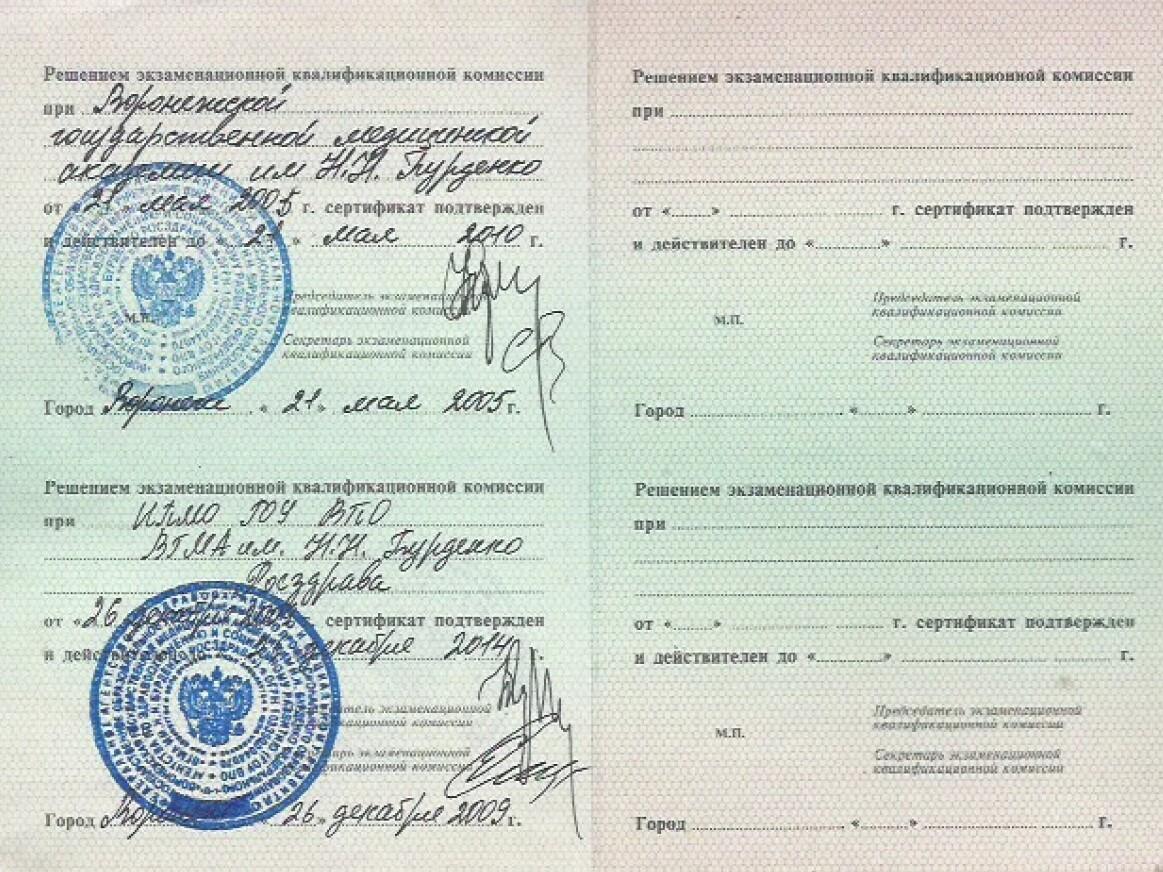 Решением экзаменационной квалификационной комиссии
при Воронежской
государственной медицинской
академии им Н.Н. Бурденко
от « 21 » мая 2005 г. сертификат подтвержден
и действителен до « 21 » мая 2010 г.
Председатель экзаменационной
квалификационной комиссии
М.П.
Секретарь экзаменационной
квалификационной комиссии
Город Воронеж . « 21 » мая 2005 г.
Решением экзаменационной квалификационной комиссии
при ИПМО ГОУ ВПО
ВГМА им. Н.Н. Бурденко
Росздрава
от « 26 декабря 2009 г. сертификат подтвержден
и действителен до декабря 2014 г.
Председатель экзаменационной
квалификационной комиссии
Секретарь экзаменационной
квалификационной комиссии
Город Воронеж 26 » декабря 2009 г.
Решением экзаменационной квалификационной комиссии
при
от « » г. сертификат подтвержден
и действителен до « » г.
Председатель экзаменационной
квалификационной комиссии
М.П.
Секретарь экзаменационной
квалификационной комиссии
Город . « » г.
Решением экзаменационной квалификационной комиссии
при
от « » г. сертификат подтвержден
и действителен до « » г.
Председатель экзаменационной
квалификационной комиссии
М.П.
Секретарь экзаменационной
квалификационной комиссии
Город . « » г.